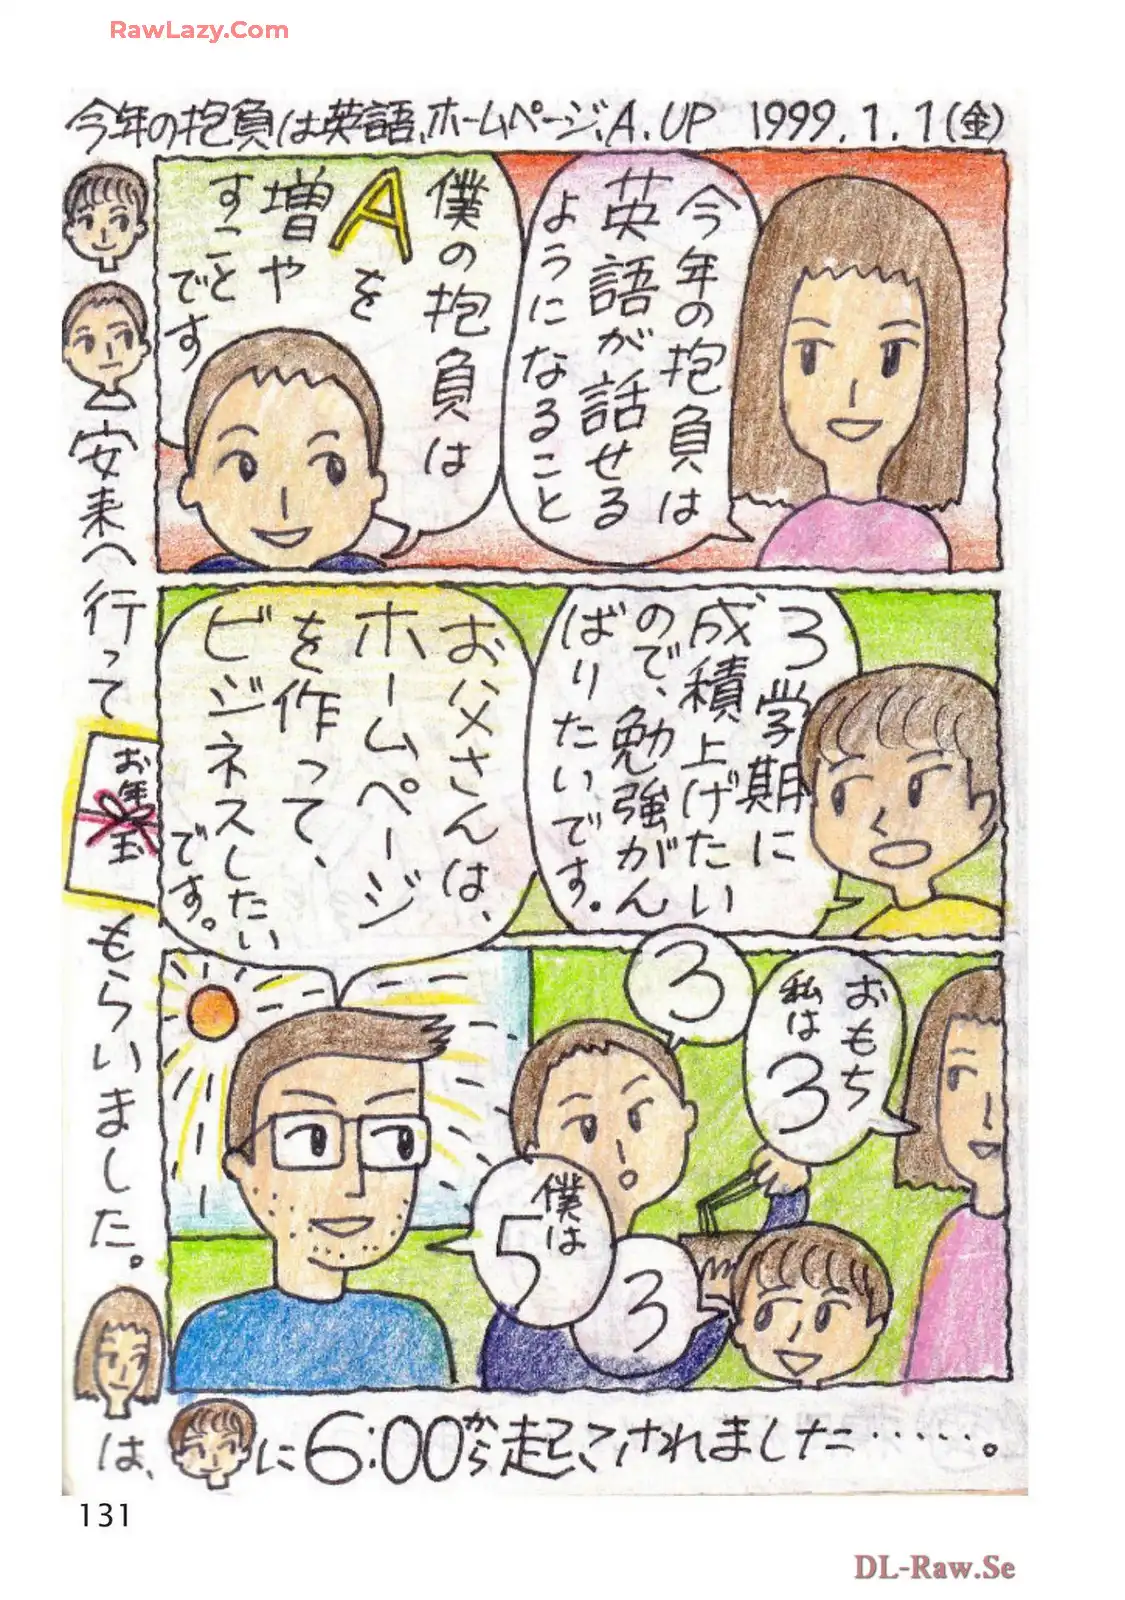 RawLazy.Com
今年の抱負は英語、ホームページ、A.UP 1999.1.1(金)
今年の抱負は
英語が話せる
ようになること
僕の抱負は
Aを
増や
すこと
です
3学期に
成積上げたい
ので、勉強がん
ばりたいです。
お父さんは、
ホームページ
を作って、
ビジネスしたい
です。
おもち
私は
3
3
僕は
5
3
安来へ行って
お年玉
もらいました。
は、
に6:00から起こされました……。
131
DL-Raw.Se